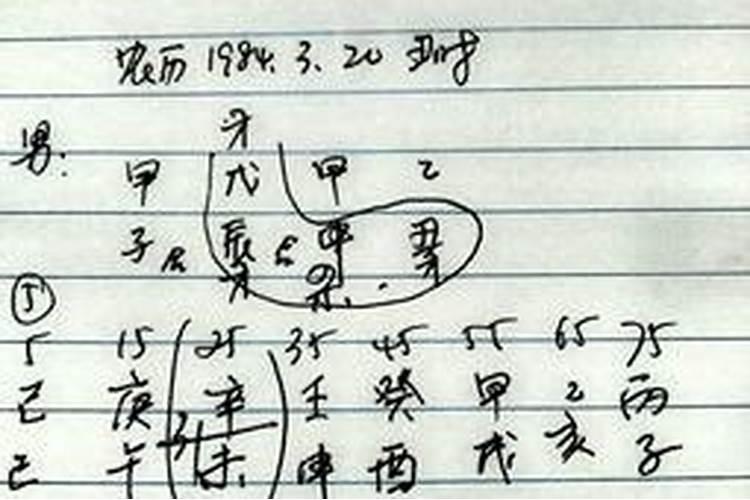 农历 1984. 3. 20 丑时
才
男: 甲 戊 甲 乙
子 辰 申 丑
才 杀 才
5
5 15 25 35 45 55 65 75
己 庚 辛 壬 癸 甲 乙 丙
巳 午 未 申 酉 戌 亥 子